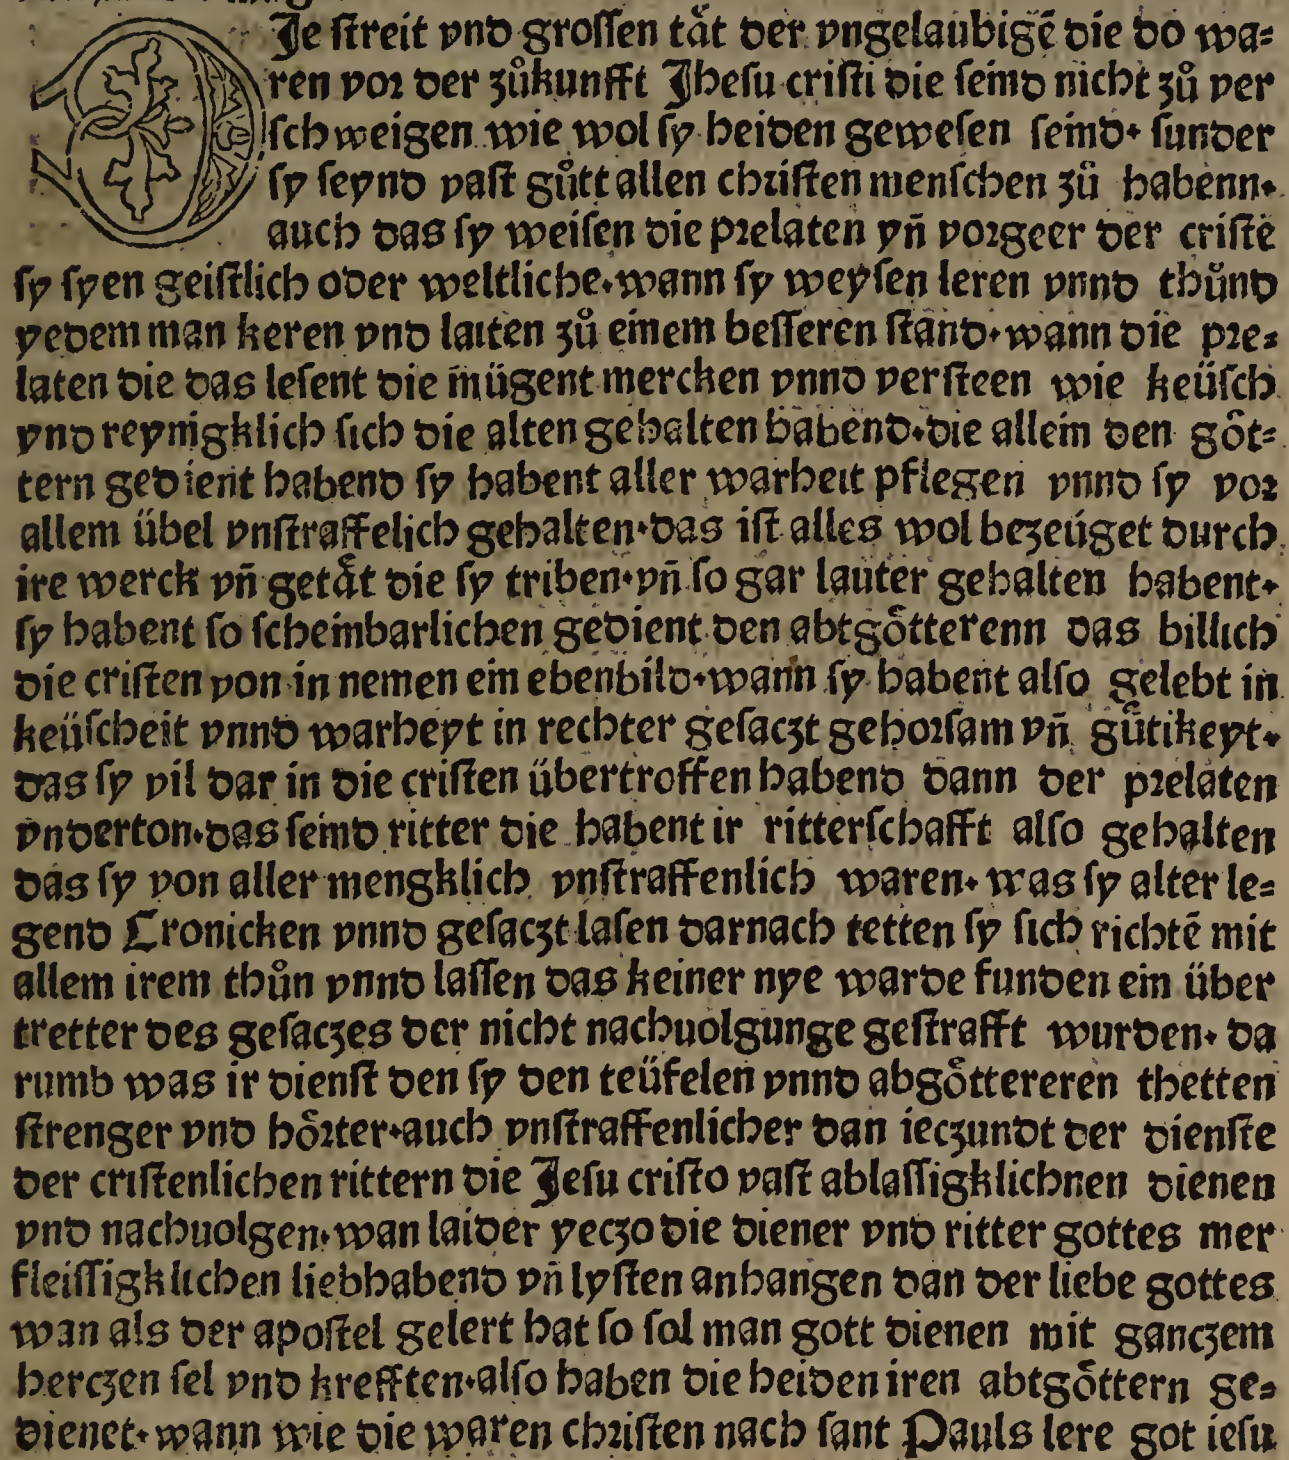 DJe ſtreit vnd groſſen tåt der vngelaubigē die do wa⸗
ren vor der zůkunfft Jheſu criſti die ſeind nicht zů ver
ſchweigen wie wol ſy heiden geweſen ſeind. ſunder
ſy ſeynd vaſt gůtt allen chriſten menſchen zů habenn.
auch das ſy weiſen die prelaten vñ vorgeer der criſtē
ſy ſyen geiſtlich oder weltliche. wann ſy weyſen leren vnnd thůnd
yedem man keren vnd laiten zů einem beſſeren ſtand. wann die pre⸗
laten die das leſent die mügent mercken vnnd verſteen wie keüſch
vnd reynigklich ſich die alten gehalten habend. die allein den göt⸗
tern gedient habend ſy habent aller warheit pflegen vnnd ſy vor
allem übel vnſtraffelich gehalten. das iſt alles wol bezeüget durch
ire werck vñ getåt die ſy triben. vñ ſo gar lauter gehalten habent.
ſy habent ſo ſcheinbarlichen gedient den abtgötterenn das billich
die criſten von in nemen ein ebenbild. wann ſy habent alſo gelebt in
keüſcheit vnnd warheyt in rechter geſaczt gehorſam vñ gütikeyt.
das ſy vil dar in die criſten übertroffen habend dann der prelaten
vnderton. das ſeind ritter die habent ir ritterſchafft alſo gehalten
das ſy von aller mengklich vnſtraffenlich waren. was ſy alter le⸗
gend Cronicken vnnd geſaczt laſen darnach tetten ſy ſich richtē mit
allem irem thůn vnnd laſſen das keiner nye warde funden ein über
tretter des geſaczes der nicht nachuolgunge geſtrafft wurden. da
rumb was ir dienſt den ſy den teüfelen vnnd abgöttereren thetten
ſtrenger vnd hörter. auch vnſtraffenlicher dan ieczundt der dienſte
der criſtenlichen rittern die Jeſu criſto vaſt ablaſſigklichnen dienen
vnd nachuolgen. wan laider yeczo die diener vnd ritter gottes mer
fleiſſigklichen liebhabend vñ lyſten anhangen dan der liebe gottes
wan als der apoſtel gelert hat ſo ſol man gott dienen mit ganczem
herczen ſel vnd krefften. alſo haben die heiden iren abtgöttern ge⸗
dienet. wann wie die waren chriſten nach ſant Pauls lere got ieſu